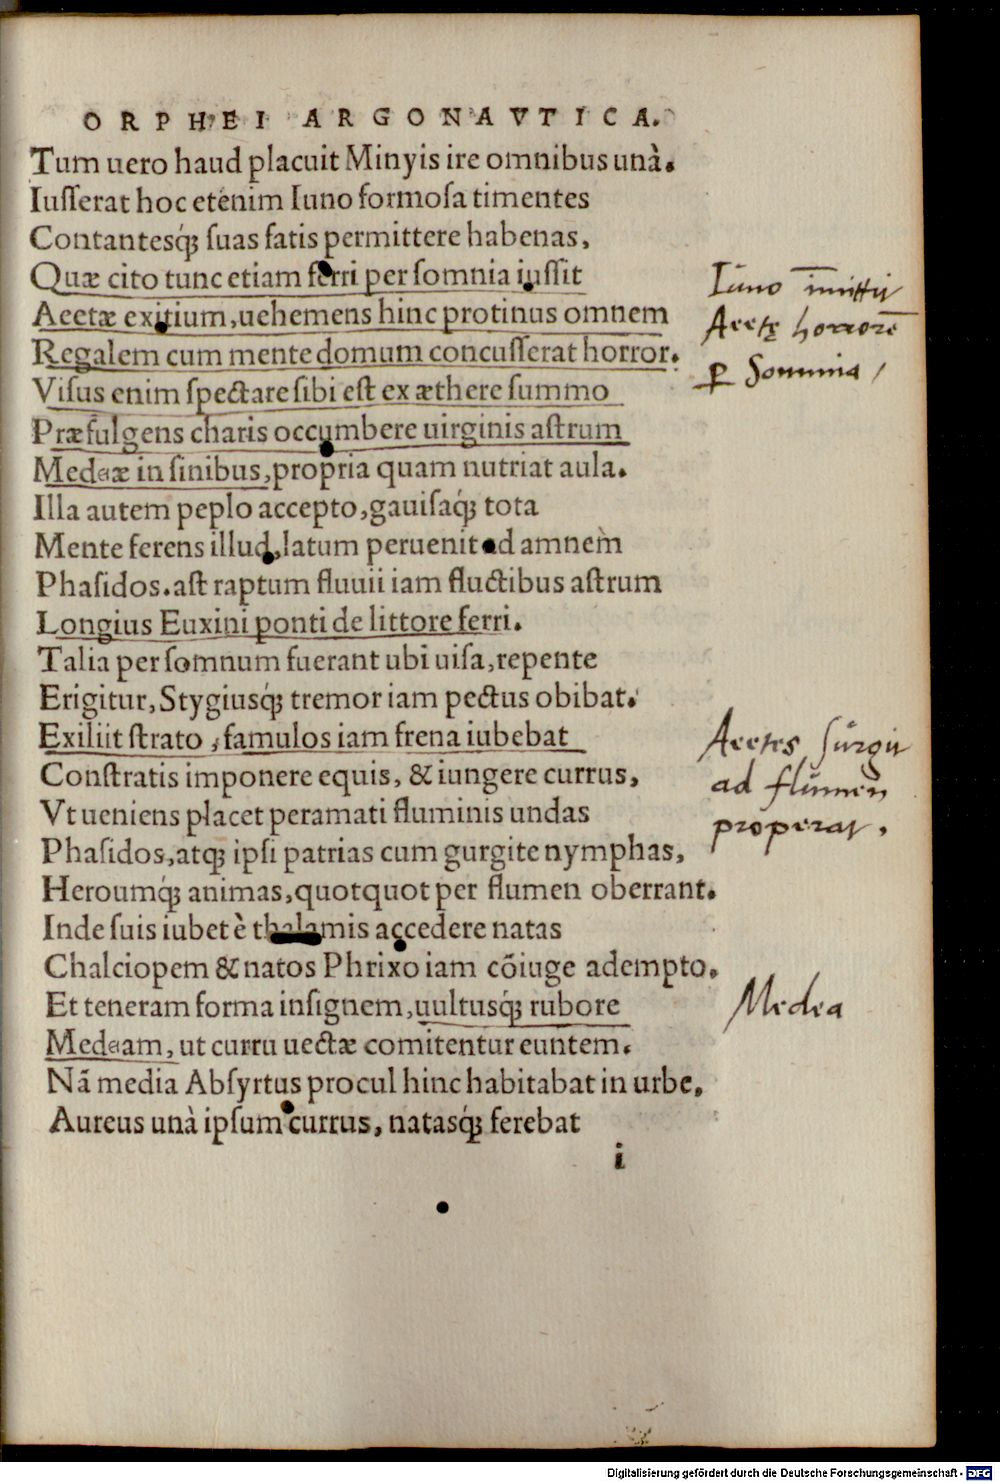 ORPHEI ARGONAVTICA.
Tum uero haud placuit Minyis ire omnibus unà.
Iuſſerat hoc etenim Iuno formoſa timentes
Contantesq́; ſuas fatis permittere habenas,
Quæ cito tunc etiam ferri per ſomnia iuſſit
Aeetæ exitium, uehemens hinc protinus omnem
Regalem cum mente domum concuſſerat horror.
Viſus enim ſpectare ſibi eſt ex æthere ſummo
Præfulgens charis occumbere uirginis aſtrum
Medeæ in ſinibus, propria quam nutriat aula.
Illa autem peplo accepto, gauiſaq́; tota
Mente ferens illud, latum peruenit ad amnem
Phaſidos. aſt raptum fluuii iam fluctibus aſtrum
Longius Euxini ponti de littore ferri.
Talia per ſomnum fuerant ubi uiſa, repente
Erigitur, Stygiusq́; tremor iam pectus obibat.
Exiliit ſtrato, famulos iam frena iubebat
Conſtratis imponere equis, & iungere currus,
Vt ueniens placet peramati fluminis undas
Phaſidos, atq; ipſi patrias cum gurgite nymphas,
Heroumq́; animas, quotquot per flumen oberrant.
Inde ſuis iubet è thalamis accedere natas
Chalciopem & natos Phrixo iam cōiuge adempto.
Et teneram forma inſignem, uultusq́; rubore
Medeam, ut curru uectæ comitentur euntem.
Nā media Abſyrtus procul hinc habitabat in urbe.
Aureus unà ipſum currus, natasq́; ferebat
i
Iuno īmittit
Aeetę horrorē
ꝑ Somnia,
Aeetes ſurgit
ad flumen
properat.
Medea
Digitalisierung gefördert durch die Deutsche Forschungsgemeinschaft - DFG